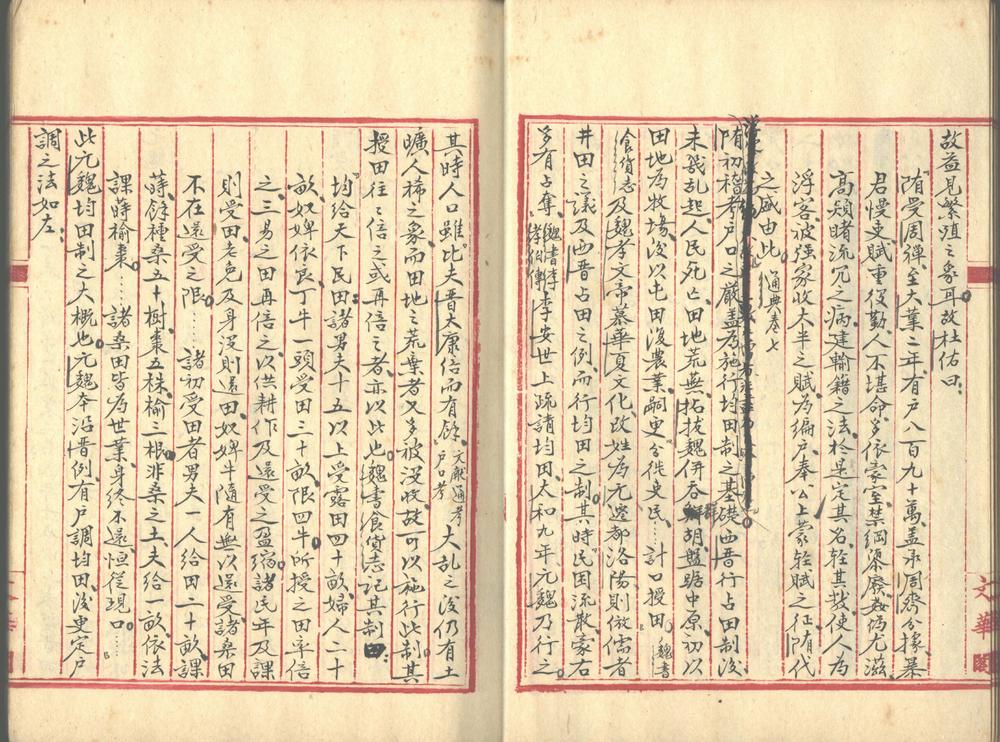 故益見繁殖之象耳故杜佑曰、
「隋受周禪至大業二年、有戶八百九十萬、蓋承周齊分據、暴
君慢吏、賦重役勤、人不堪命、多依豪室、禁綱隳廢、姦偽尤滋、
高熲睹流冗之病、建輸籍之法、於是定其名、輕其數、使人為
浮客、被強家收大半之賦、為編戶、奉公上蒙輕賦之征、隋代
之盛由此。」通典卷七
隋初稽考戶口之嚴、蓋為施行均田制之基礎、西晉行占田制後、
未幾乱起、人民死亡、田地荒蕪、拓拔魏併吞群胡盤踞中原、初以
田地為牧場、後以屯田復農業、嗣更「分徙吏民……計口授田」魏書
食貨志及魏孝文帝慕華夏文化、改姓為元、遷都洛陽、則倣儒者
井田之議、及西晉占田之例、而行均田之制。其時「民困流散、豪右
多有占奪」魏書李孝伯傳李安世上疏請均田、太和九年、元魏乃行之。
其時人口雖「比夫晉太康倍而有餘」文獻通考戶口考大乱之後、仍有土
曠人稀之象、而田地之荒棄者、又多被沒收、故可以施行此制。其
授田往之倍之或再倍之者、亦以此也。魏書食貨志記其制曰:
「均給天下民田:諸男夫十五以上受露田四十畝、婦人二十
畝、奴婢依良、丁牛一頭受田三十畝、限四牛、所授之田率倍
之、三易之田再倍之、以供耕作及還受之盈縮。諸民年及課
則受田、老免及身沒則還田、奴婢牛隨有無以還受、諸桑田
不在還受之限。……諸初受田者、男夫一人給田二十畝、課
蒔餘、種桑五十樹、棗五株、榆三根。非桑之土、夫給一畝、依法
課蒔榆棗。……諸桑田皆為世業、身終不還、恒從現口。……」
此元魏均田制之大概也。元魏本沿晉例、有戶調、均田後更定戶
調之法如左、
文華閣